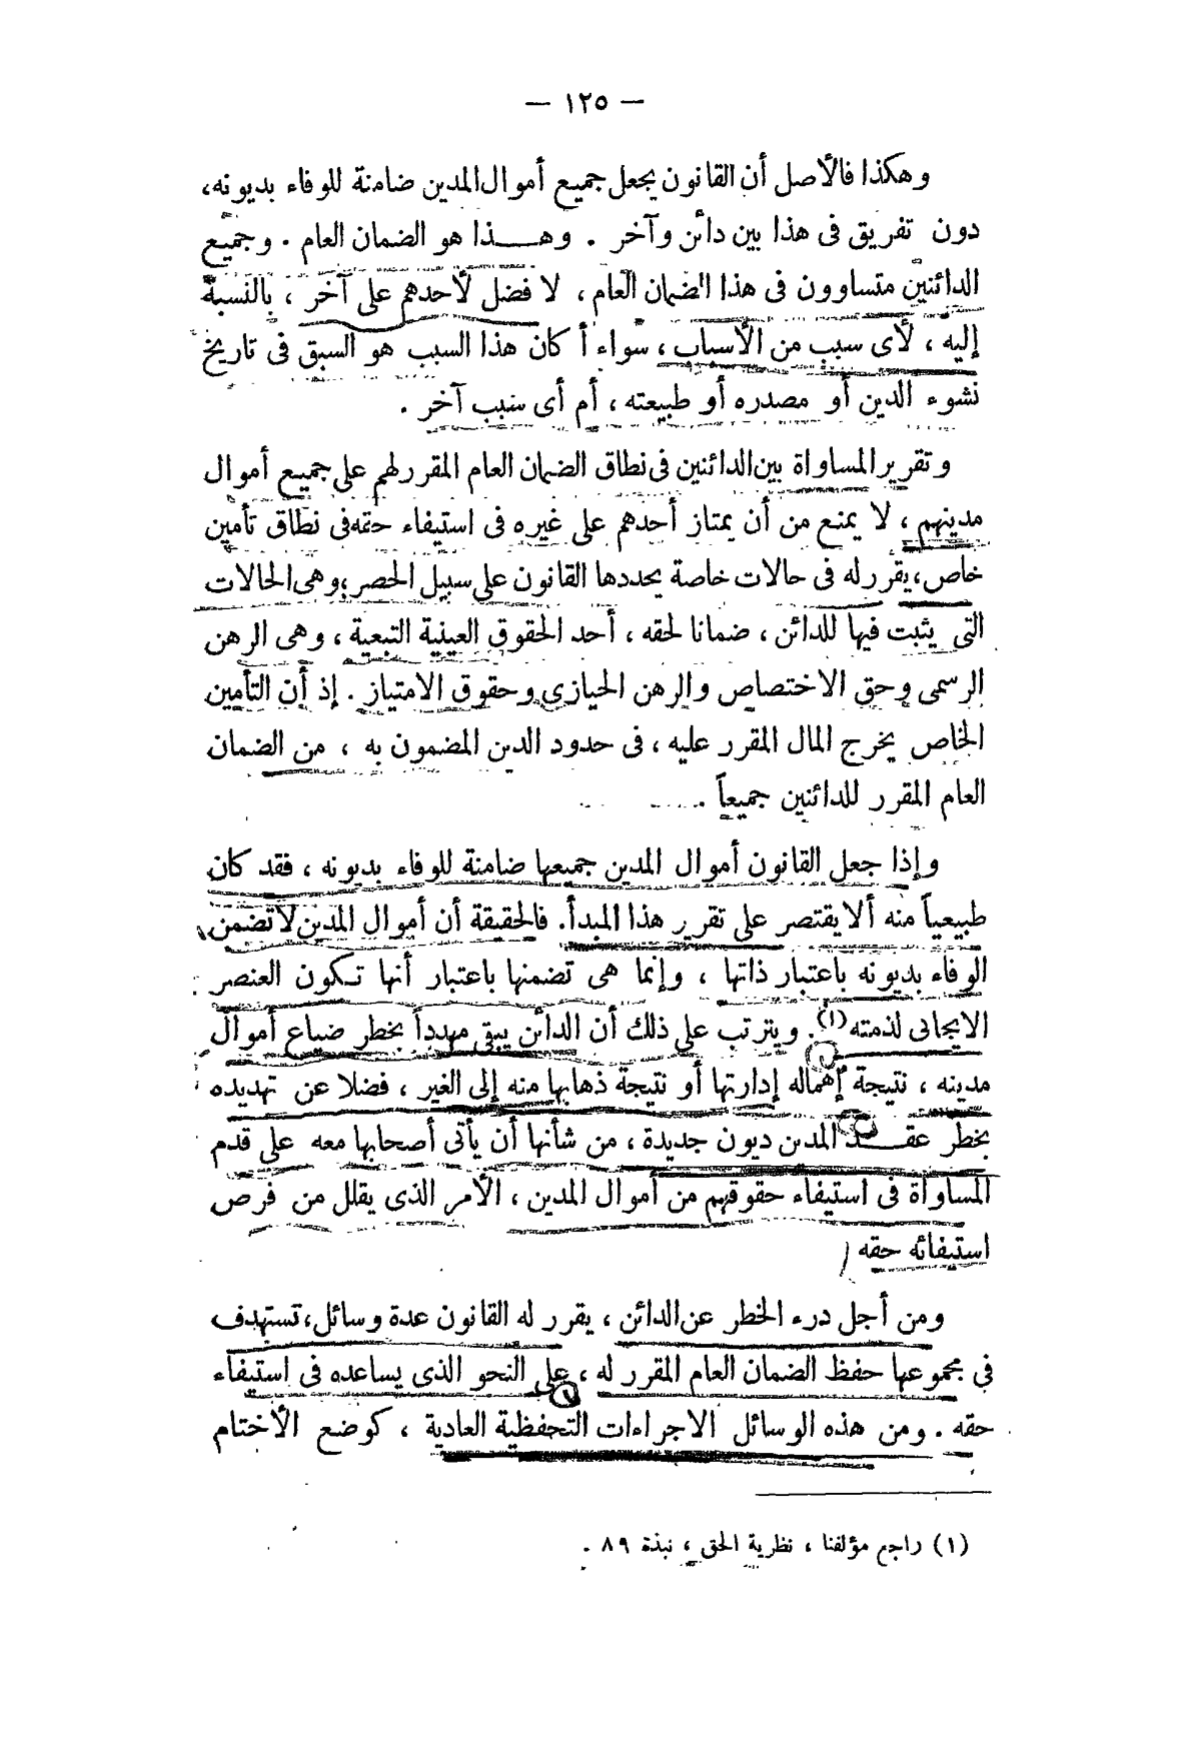 — ١٢٥ —
وهكذا فالأصل أن القانون يجعل جميع أموال المدين ضامنة للوفاء بديونه،
دون تفريق فى هذا بين دائن وآخر . وهــــذا هو الضمان العام . وجميع
الدائنين متساوون فى هذا الضمان العام ، لا فضل لأحدهم على آخر ، بالنسبة
إليه ، لأى سبب من الأسباب ، سواء أكان هذا السبب هو السبق فى تاريخ
نشوء الدين أو مصدره أو طبيعته ، أم أى سبب آخر .
وتقرير المساواة بين الدائنين فى نطاق الضمان العام المقرر لهم على جميع أموال
مدينهم ، لا يمنع من أن يمتاز أحدهم على غيره فى استيفاء حقه فى نطاق تأمين
خاص ، يقرر له فى حالات خاصة يحددها القانون على سبيل الحصر ؛ وهى الحالات
التى يثبت فيها للدائن ، ضمانا لحقه ، أحد الحقوق العينية التبعية ، وهى الرهن
الرسمى وحق الاختصاص والرهن الحيازى وحقوق الامتياز . إذ أن التأمين
الخاص يخرج المال المقرر عليه ، فى حدود الدين المضمون به ، من الضمان
العام المقرر للدائنين جميعاً .
وإذا جعل القانون أموال المدين جميعها ضامنة للوفاء بديونه ، فقد كان
طبيعياً منه ألا يقتصر على تقرير هذا المبدأ . فالحقيقة أن أموال المدين لا تضمن
الوفاء بديونه باعتبار ذاتها ، وإنما هى تضمنها باعتبار أنها تـكون العنصر
الايجابى لذمته (١) . ويترتب على ذلك أن الدائن يبقى مهدداً بخطر ضياع أموال
مدينه ، نتيجة إهماله إدارتها أو نتيجة ذهابها منه إلى الغير ، فضلا عن تهديده
بخطر عقــــد المدين ديون جديدة ، من شأنها أن يأتى أصحابها معه على قدم
المساواة فى استيفاء حقوقهم من أموال المدين ، الأمر الذى يقلل من فرص
استيفائه حقه
ومن أجل درء الخطر عن الدائن ، يقرر له القانون عدة وسائل ، تستهدف
فى مجموعها حفظ الضمان العام المقرر له ، على النحو الذى يساعده فى استيفاء
حقه . ومن هذه الوسائل الاجراءات التحفظية العادية ، كوضع الأختام
(١) راجع مؤلفنا ، نظرية الحق ، نبذة ٨٩ .